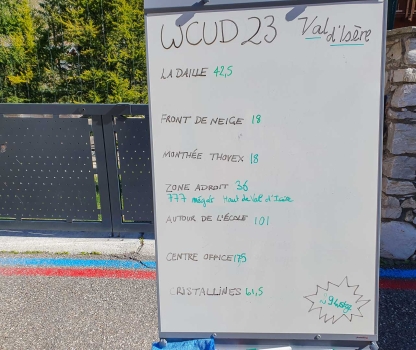 WCUD 23 Val d'Isère
LA DAILLE 42,5
FRONT DE NEIGE 18
MONTHÉE THOVEX 18
ZONE ADROIT 36
777 mégots Haut de Val d'Isère
AUTOUR DE L'ÉCOLE 101
CENTRE OFFICE 175
CRISTALLINES 61,5